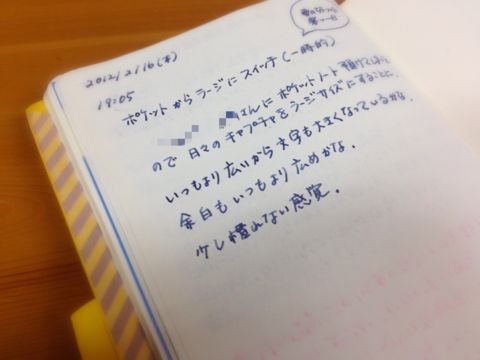 2012/2/16(木)
19:05
ポケットからラージにスイッチ(一時的)
さんにポケットノート
ので日々のキャプチャをラージサイズにすることに。
いつもより広いから文字も大きくなっているかな。
余白もいつもより広めかな。
少し慣れない感覚。